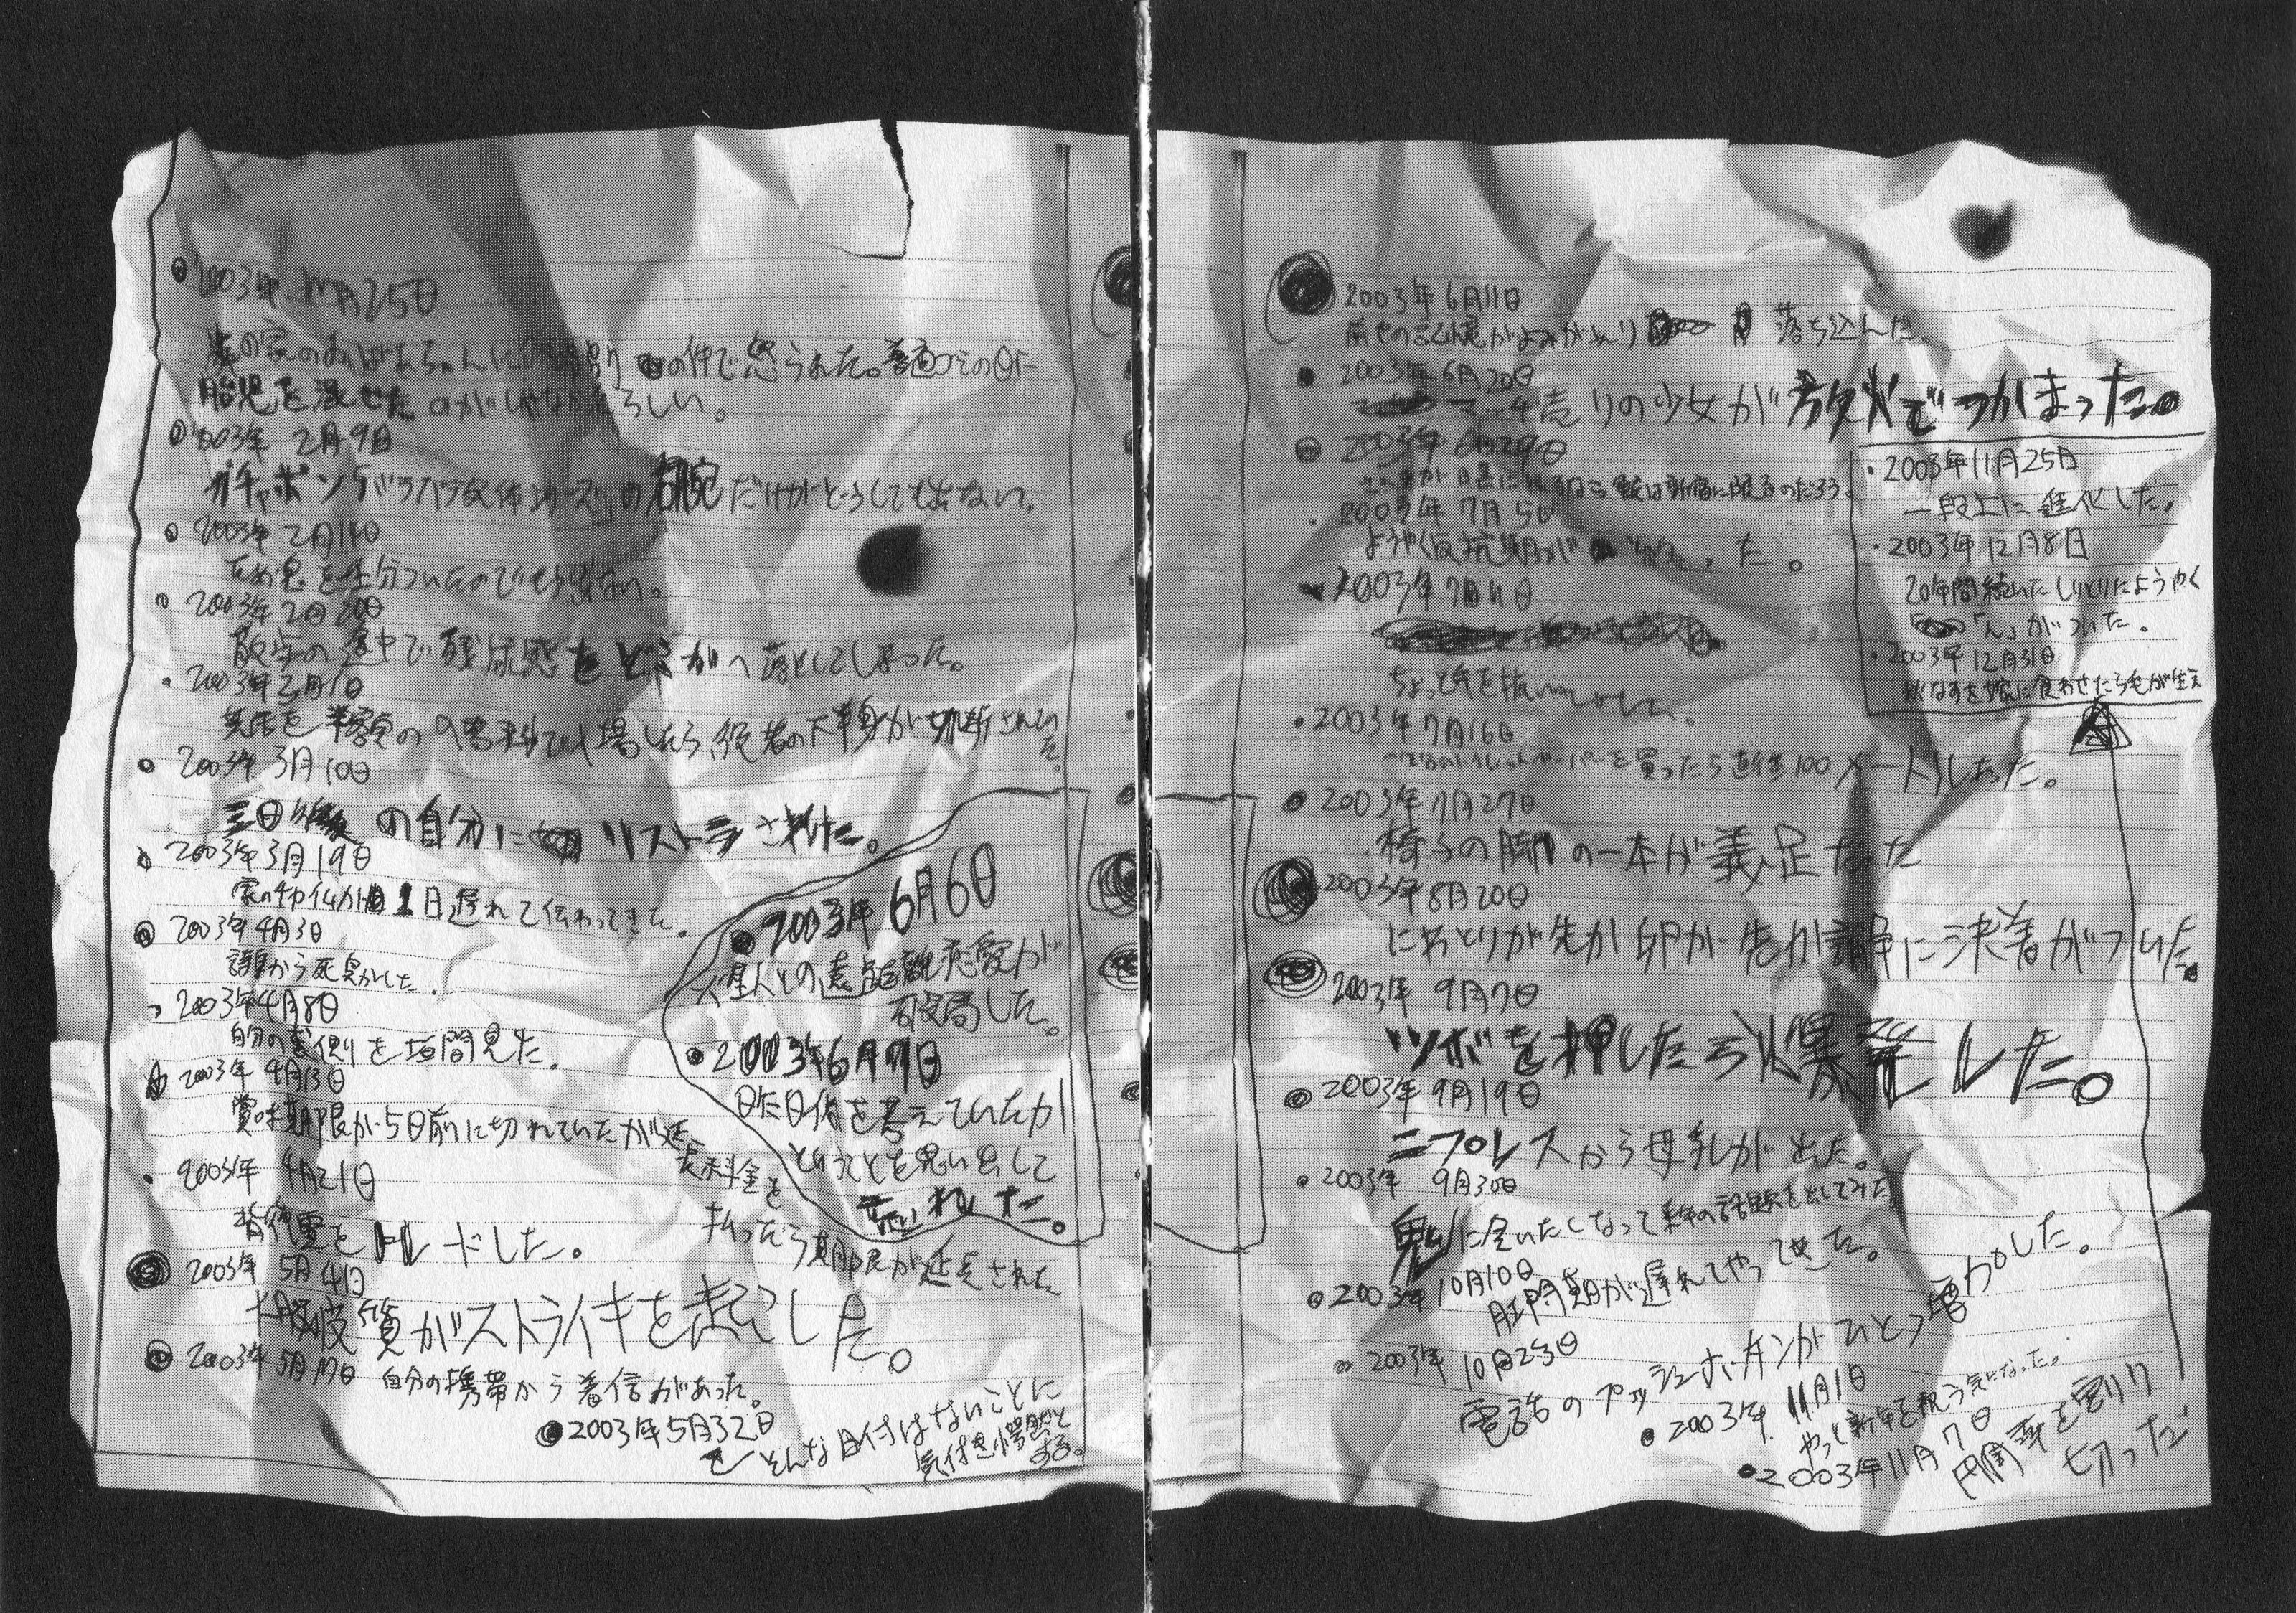 2003年 25日
の家のおばあちゃんに の件で怒られた。普通ゴミの日に
胎児を混ぜた のがいけなかったらしい。
003年 2月9日
ガチャポン「バラバラ死体シリーズ」の右腕だけがどうしても出ない。
2003年 2月14日
ため息を 分ついたのでもう出ない。
2003年2月20日
散歩の途中で残尿感をどこかへ落としてしまった。
2003年3月1日
半額の入場料で入場したら、役者の下半身が切断されてた。
2003年 3月10日
三日後の自分にリストラされた。
2003年3月19日
1日遅れて伝わってきた。
2003年4月3日
から死臭がした。
2003年4月8日
自分の裏側を垣間見た。
2003年 4月13日
賞味期限が5日前に切れていたが延
長料金を
払ったら期限が延長された
2003年 4月21日
背後霊をトレードした。
2003年 5月4日
大脳皮質がストライキを起こした。
2003年 5月17日 自分の携帯から着信があった。
2003年5月32日
そんな日付はないことに
気付き愕然と
する。
2003年 6月6日
火星人との遠距離恋愛が
破局した。
2003年6月7日
昨日何を考えていたか
ということを思い出して
忘れた。
2003年 6月11日
前世の記憶がよみがえり 落ち込んだ。
2003年 6月20日
マッチ売りの少女が放火でつかまった。
2003年 6月29日
さんまが目黒に限るなら は新宿に限るのだろう。
2003年 7月5日
ようやく反抗期が った。
2003年 7月11日
ちょっと手を抜い
2003年 7月16日
のトイレットペーパーを買ったら直径100メートルあった。
2003年 7月27日
椅子の脚の一本が義足だった
2003年8月20日
にわとりが先か卵が先か論争に決着がついた。
2003年 9月7日
ツボを押したら爆発した。
2003年 9月19日
ニプレスから母乳が出た。
2003年 9月30日
鬼に会いたくなって来年の話題を出してみた。
2003年 10月10日
肛門期が遅れてやって来た。
2003年 10月23日
電話のプッシュホンボタンがひとつ増加した。
2003年 11月1日
やっと新年を祝う気になった。
2003年11月7日
円周率を割り
切った
2003年11月25日
一段上に進化した。
2003年12月8日
20年間続いたしりとりにようやく
「ん」がついた。
2003年12月31日
秋なすを嫁に食わせたら毛が生え